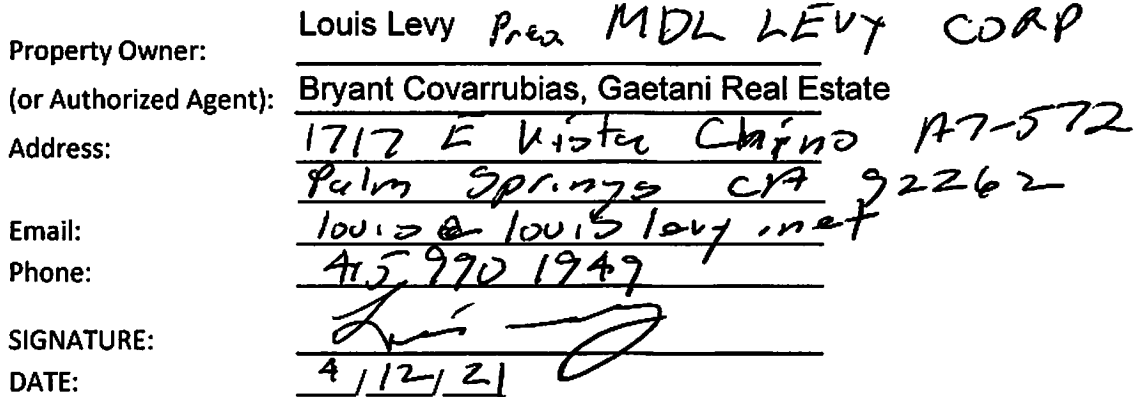 Property Owner: Louis Levy Pres MDL LEVY CORP
(or Authorized Agent): Bryant Covarrubias, Gaetani Real Estate
Address: 1717 E Vista Chino A7-572
Palm Springs CA 92262
Email: louis@louislevy.net
Phone: 415 990 1949
SIGNATURE:
DATE: 4/12/21